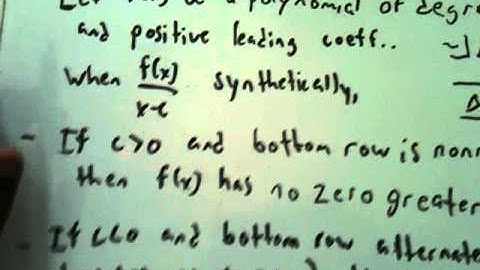 be a polynomial of
and positive leading coeff..
when f(x)/x-c synthetically,
- If c>0 and bottom row is
then f(x) has no zero greater
- If c<0 and bottom row